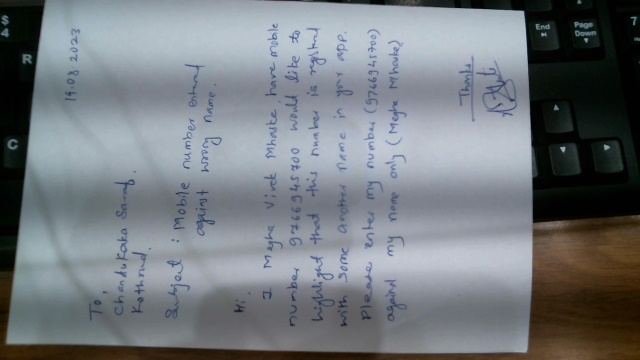 19.08.2023
To,
Chandukaka Saraf.
Kothrud.
Subject : Mobile number entered
against wrong name.
Hi,
I Megha Vivek Mhaske, have mobile
number 9766945700 would like to
highlight that this number is registered
with some another name in your app.
Please enter my number (9766945700)
against my name only (Megha Mhaske)
Thanks
End
Page
Down
$
4
R
C
7